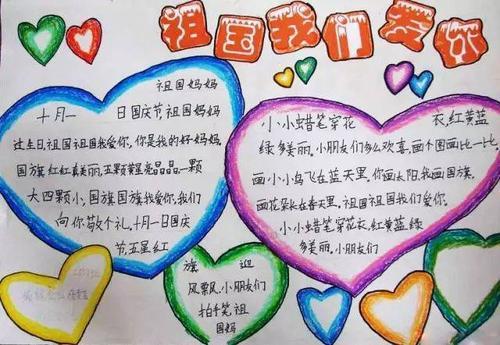 祖国我们爱你
祖国妈妈
十月一
日国庆节,祖国妈妈
过生日,祖国祖国我爱你,你是我的好妈妈.
国旗红红真美丽,五颗星亮晶晶,一颗
大四颗小,国旗国旗我爱你,我们
向你敬个礼.十月一日国庆
节,五星红
小小蜡笔穿花
衣,红黄蓝
绿多美丽.小朋友们多么欢喜,画个图画比一比,
画小小鸟飞在蓝天里,你画太阳,我画国旗,
画花朵长在春天里,祖国祖国我们爱你.
小小蜡笔穿花衣,红黄蓝绿
多美丽.小朋友们
旗迎
风飘飘,小朋友们
拍手笑,祖
国妈